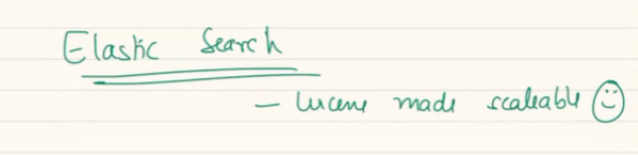 Elastic Search
— Lucene made scaleable ☺